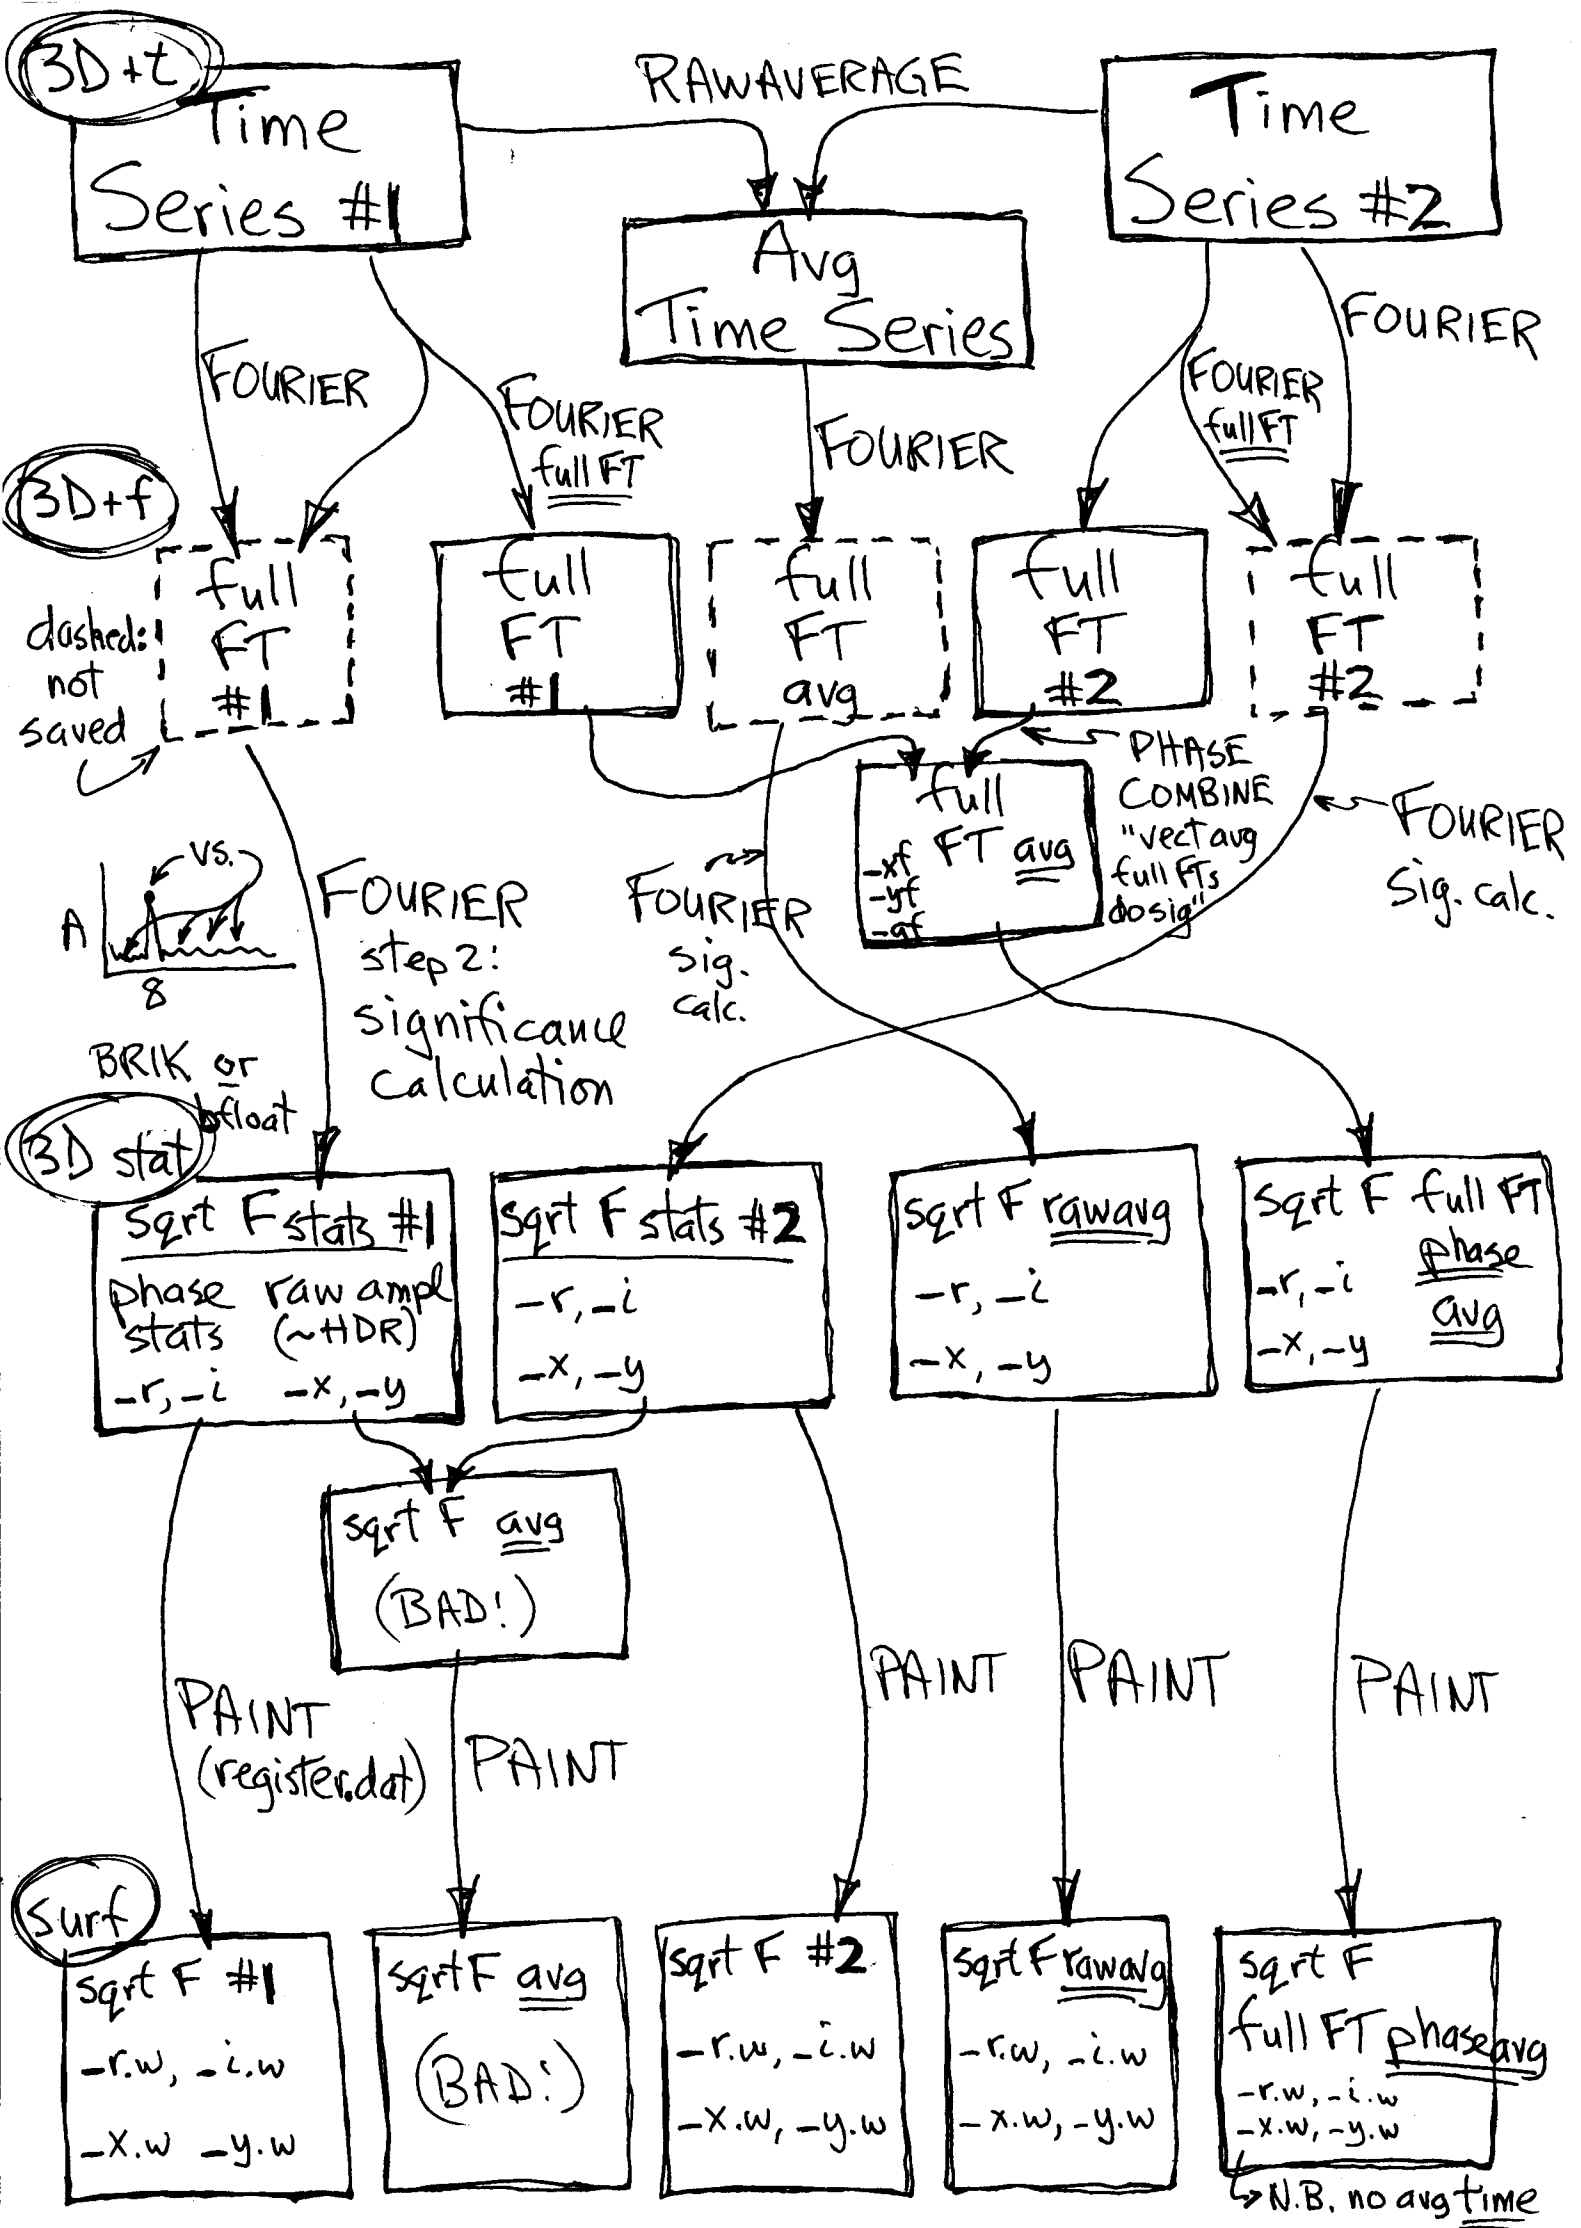 3D+t
Time
Series #1
RAWAVERAGE
Time
Series #2
Avg
Time Series
FOURIER
FOURIER
full FT
FOURIER
FOURIER
full FT
FOURIER
3D+f
dashed:
not
saved
full
FT
#1
full
FT
#1
full
FT
avg
full
FT
#2
full
FT
#2
PHASE
COMBINE
"vect avg
full FTs
dosig"
full
FT avg
-xf
-yf
-af
FOURIER
sig. calc.
vs.
A
8
FOURIER
step 2:
significance
calculation
FOURIER
sig.
calc.
BRIK or
bfloat
3D stat
sqrt F stats #1
phase raw ampl
stats (~HDR)
-r, -i -x, -y
sqrt F stats #2
-r, -i
-x, -y
sqrt F rawavg
-r, -i
-x, -y
sqrt F full FT
phase
-r, -i
avg
-x, -y
sqrt F avg
(BAD!)
PAINT
(register.dat)
PAINT
PAINT
PAINT
PAINT
surf
sqrt F #1
-r.w, -i.w
-x.w -y.w
sqrt F avg
(BAD!)
sqrt F #2
-r.w, -i.w
-x.w, -y.w
sqrt F rawavg
-r.w, -i.w
-x.w, -y.w
sqrt F
full FT phase avg
-r.w, -i.w
-x.w, -y.w
N.B. no avg time